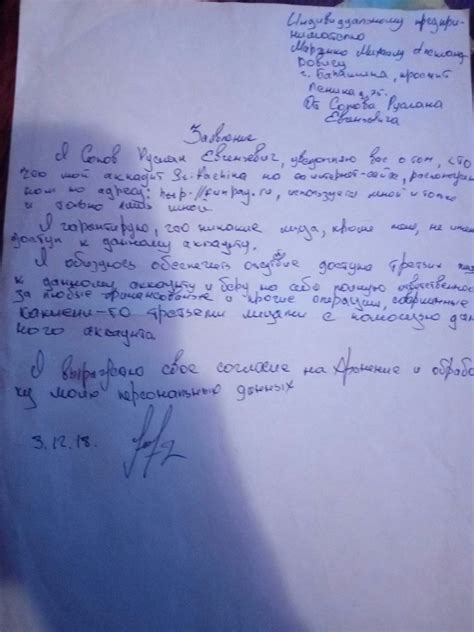 Индивидуальному предпри-
нимателю
Марзико Михаилу
г. Балашиха, проспект
Ленина
От Сопова Руслана
Евгеньевича
Заявление
Я Сопов Руслан Евгеньевич, уведомляю вас о том, что
что мой аккаунт на интернет-сайте, расположен-
ном по адресу: http://funpay.ru, используется мной и только
и только лишь мной
Я гарантирую, что никакие лица, кроме меня, не имеют
доступ к данному аккаунту.
Я обязуюсь обеспечить отсутствие доступа третьих
к данному аккаунту и беру на себя полную ответственность
за любые финансовые и прочие операции, совершённые
какими-то третьеми лицами с помощью дан-
ного аккаунта
Я выражаю свое согласие на хранение и обработ
ку моих персональных данных
3.12.18.